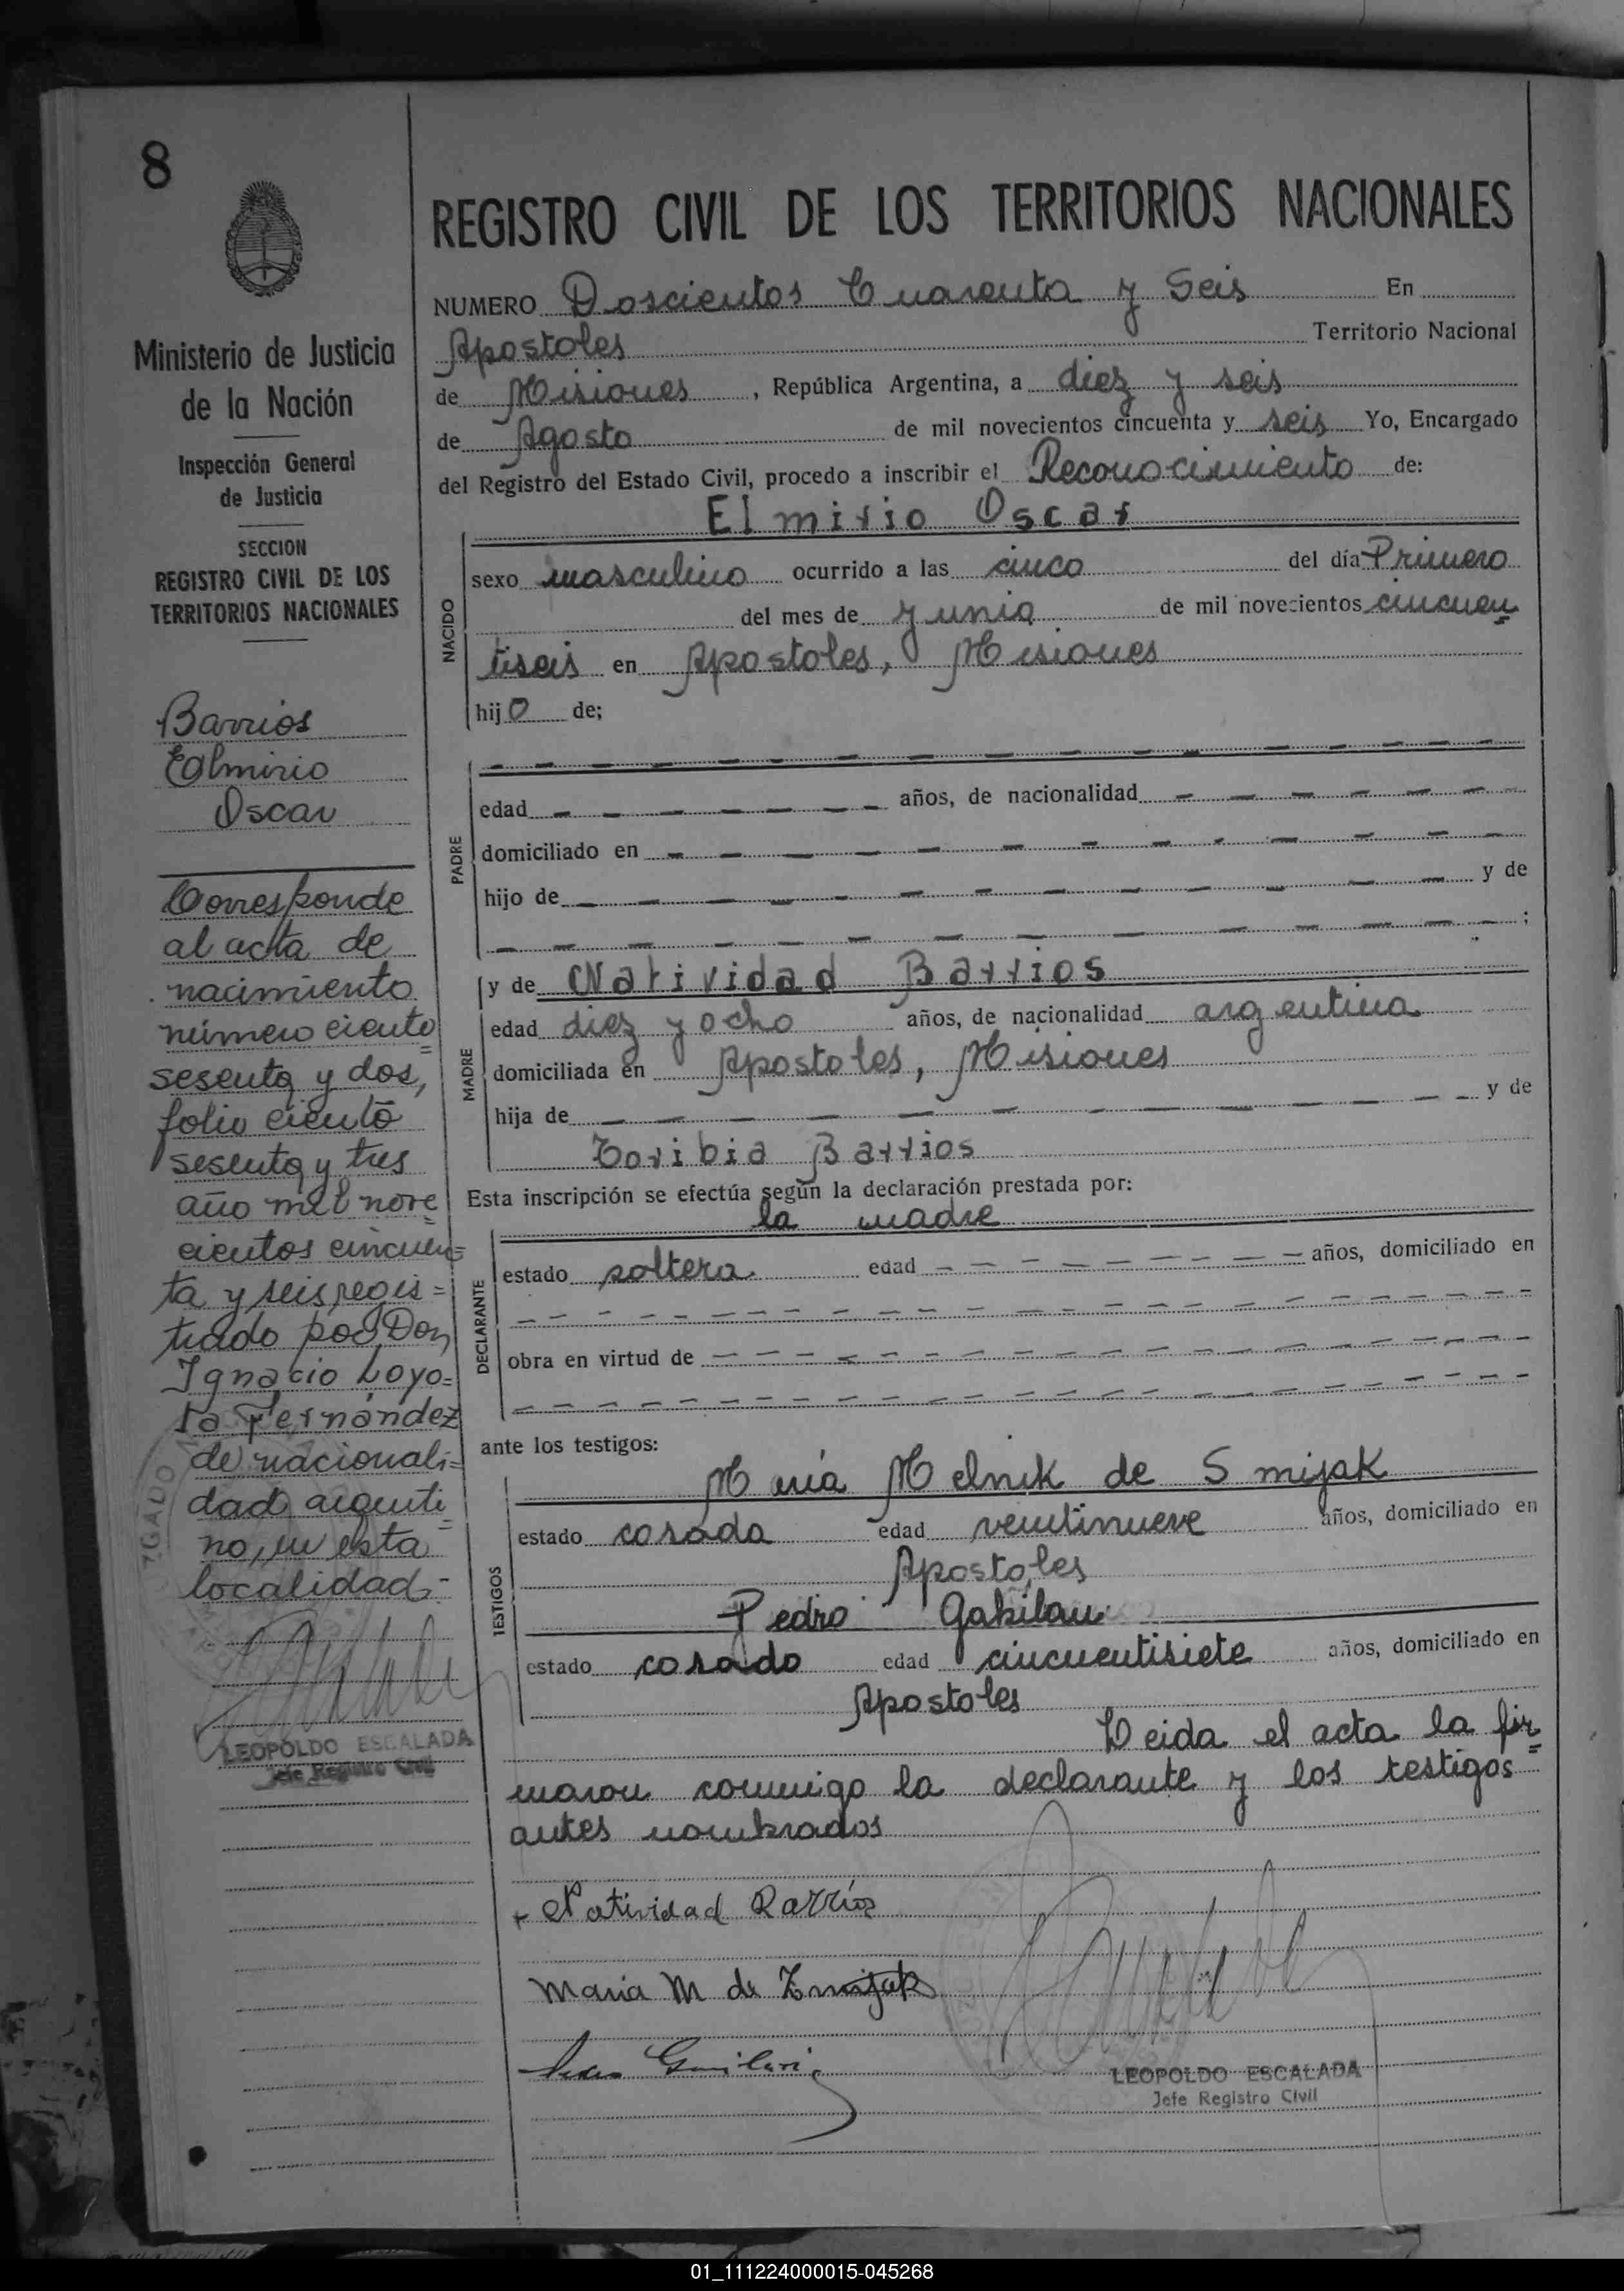 8
REGISTRO CIVIL DE LOS TERRITORIOS NACIONALES
Ministerio de Justicia
de la Nación
Inspección General
de Justicia
SECCION
REGISTRO CIVIL DE LOS
TERRITORIOS NACIONALES
Barrios
Elmirio
Oscar
Corresponde
al acta de
nacimiento
número ciento
sesenta y dos,
folio ciento
sesenta y tres
año mil nove=
cientos cincuen=
ta y seis, regis=
trado por Don
Ignacio Loyo=
la Fernández
de nacionali=
dad argenti=
no, en esta
localidad.-
LEOPOLDO ESCALADA
Jefe Registro Civil
NUMERO Doscientos Cuarenta y Seis En
Apostoles Territorio Nacional
de Misiones, República Argentina, a diez y seis
de Agosto de mil novecientos cincuenta y seis Yo, Encargado
del Registro del Estado Civil, procedo a inscribir el Reconocimiento de:
Elmirio Oscar
NACIDO
sexo masculino ocurrido a las cinco del día Primero
del mes de Junio de mil novecientos cincuen=
tiseis en Apostoles, Misiones
hijo de;
PADRE
edad años, de nacionalidad
domiciliado en
hijo de y de
;
MADRE
y de Natividad Barrios
edad diez y ocho años, de nacionalidad argentina
domiciliada en Apostoles, Misiones
hija de y de
Toribia Barrios
Esta inscripción se efectúa según la declaración prestada por:
la madre
DECLARANTE
estado soltera edad años, domiciliado en
obra en virtud de
ante los testigos:
TESTIGOS
María Melnik de Smijak
estado casada edad veintinueve años, domiciliado en
Apostoles
Pedro
estado casado edad cincuentisiete años, domiciliado en
Apostoles
Leida el acta la fir=
maron conmigo la declarante y los testigos
antes nombrados
+ Natividad Barrios
Maria M de Zmijak
LEOPOLDO ESCALADA
Jefe Registro Civil
01_111224000015-045268